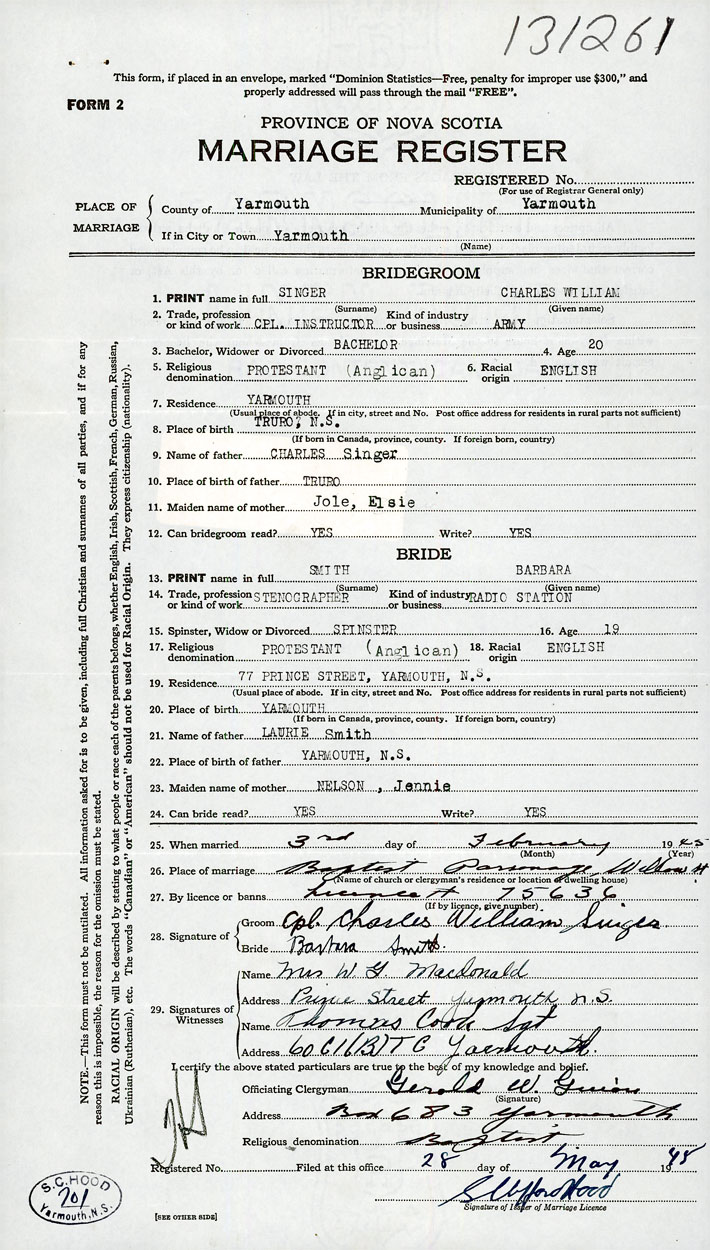 131261
This form, if placed in an envelope, marked "Dominion Statistics—Free, penalty for improper use $300," and
properly addressed will pass through the mail "FREE".
FORM 2
PROVINCE OF NOVA SCOTIA
MARRIAGE REGISTER
REGISTERED No.
(For use of Registrar General only)
PLACE OF MARRIAGE
County of Yarmouth Municipality of Yarmouth
If in City or Town Yarmouth
(Name)
BRIDEGROOM
1. PRINT name in full SINGER CHARLES WILLIAM
(Surname) (Given name)
2. Trade, profession Kind of industry
or kind of work CPL. INSTRUCTOR or business ARMY
3. Bachelor, Widower or Divorced BACHELOR 4. Age 20
5. Religious denomination PROTESTANT (Anglican) 6. Racial origin ENGLISH
7. Residence YARMOUTH
(Usual place of abode. If in city, street and No. Post office address for residents in rural parts not sufficient)
8. Place of birth TRURO, N.S.
(If born in Canada, province, county. If foreign born, country)
9. Name of father CHARLES Singer
10. Place of birth of father TRURO
11. Maiden name of mother Jole, Elsie
12. Can bridegroom read? YES Write? YES
BRIDE
13. PRINT name in full SMITH BARBARA
(Surname) (Given name)
14. Trade, profession Kind of industry
or kind of work STENOGRAPHER or business RADIO STATION
15. Spinster, Widow or Divorced SPINSTER 16. Age 19
17. Religious denomination PROTESTANT (Anglican) 18. Racial origin ENGLISH
19. Residence 77 PRINCE STREET, YARMOUTH, N.S.
(Usual place of abode. If in city, street and No. Post office address for residents in rural parts not sufficient)
20. Place of birth YARMOUTH
(If born in Canada, province, county. If foreign born, country)
21. Name of father LAURIE Smith
22. Place of birth of father YARMOUTH, N.S.
23. Maiden name of mother NELSON , Jennie
24. Can bride read? YES Write? YES
25. When married 3rd day of February 1945
(Month) (Year)
26. Place of marriage Baptist Parsonage, Wilson
(Name of church or clergyman's residence or location of dwelling house)
27. By licence or banns Licence # 75636
(If by licence, give number)
28. Signature of
Groom Cpl. Charles William Singer
Bride Barbara Smith.
29. Signatures of Witnesses
Name Mrs W. G. Macdonald
Address Prince Street Yarmouth N.S.
Name Thomas Cook Sgt
Address 60 C I (B) T C Yarmouth.
I certify the above stated particulars are true to the best of my knowledge and belief.
Officiating Clergyman Gerald W. Guion
(Signature)
Address Box 683 Yarmouth
Religious denomination Baptist
Registered No. Filed at this office 28 day of May 1945
Signature of Issuer of Marriage Licence
S.C. HOOD
201
Yarmouth, N.S.
[SEE OTHER SIDE]
NOTE.—This form must not be mutilated. All information asked for is to be given, including full Christian and surnames of all parties, and if for any
reason this is impossible, the reason for the omission must be stated.
RACIAL ORIGIN will be described by stating to what people or race each of the parents belongs, whether English, Irish, Scottish, French, German, Russian,
Ukrainian (Ruthenian), etc. The words "Canadian" or "American" should not be used for Racial Origin. They express citizenship (nationality).